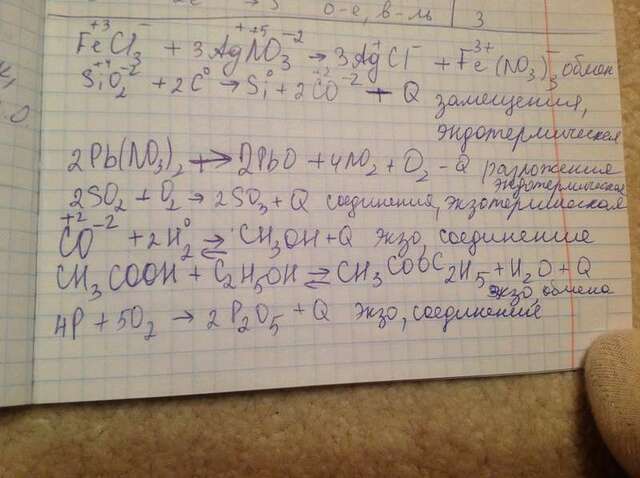 о-е, в-ль 3
FeCl₃ + 3AgNO₃ → 3AgCl + Fe(NO₃)₃ обмен
SiO₂ + 2C → Si + 2CO + Q замещения,
эндотермическая
2Pb(NO₃)₂ → 2PbO + 4NO₂ + O₂ - Q разложение
эндотермическая
2SO₂ + O₂ → 2SO₃ + Q соединения, экзотермическая
CO + 2H₂ ⇌ CH₃OH + Q экзо, соединение
CH₃COOH + C₂H₅OH ⇌ CH₃COOC₂H₅ + H₂O + Q
экзо, обмена
4P + 5O₂ → 2P₂O₅ + Q экзо, соединение